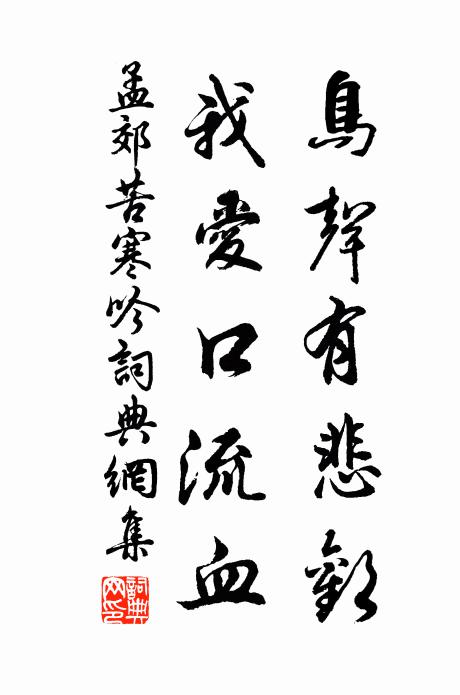 鳥聲有悲歡
我愛口流血
孟郊苦寒吟詞典網集
詞典
网印